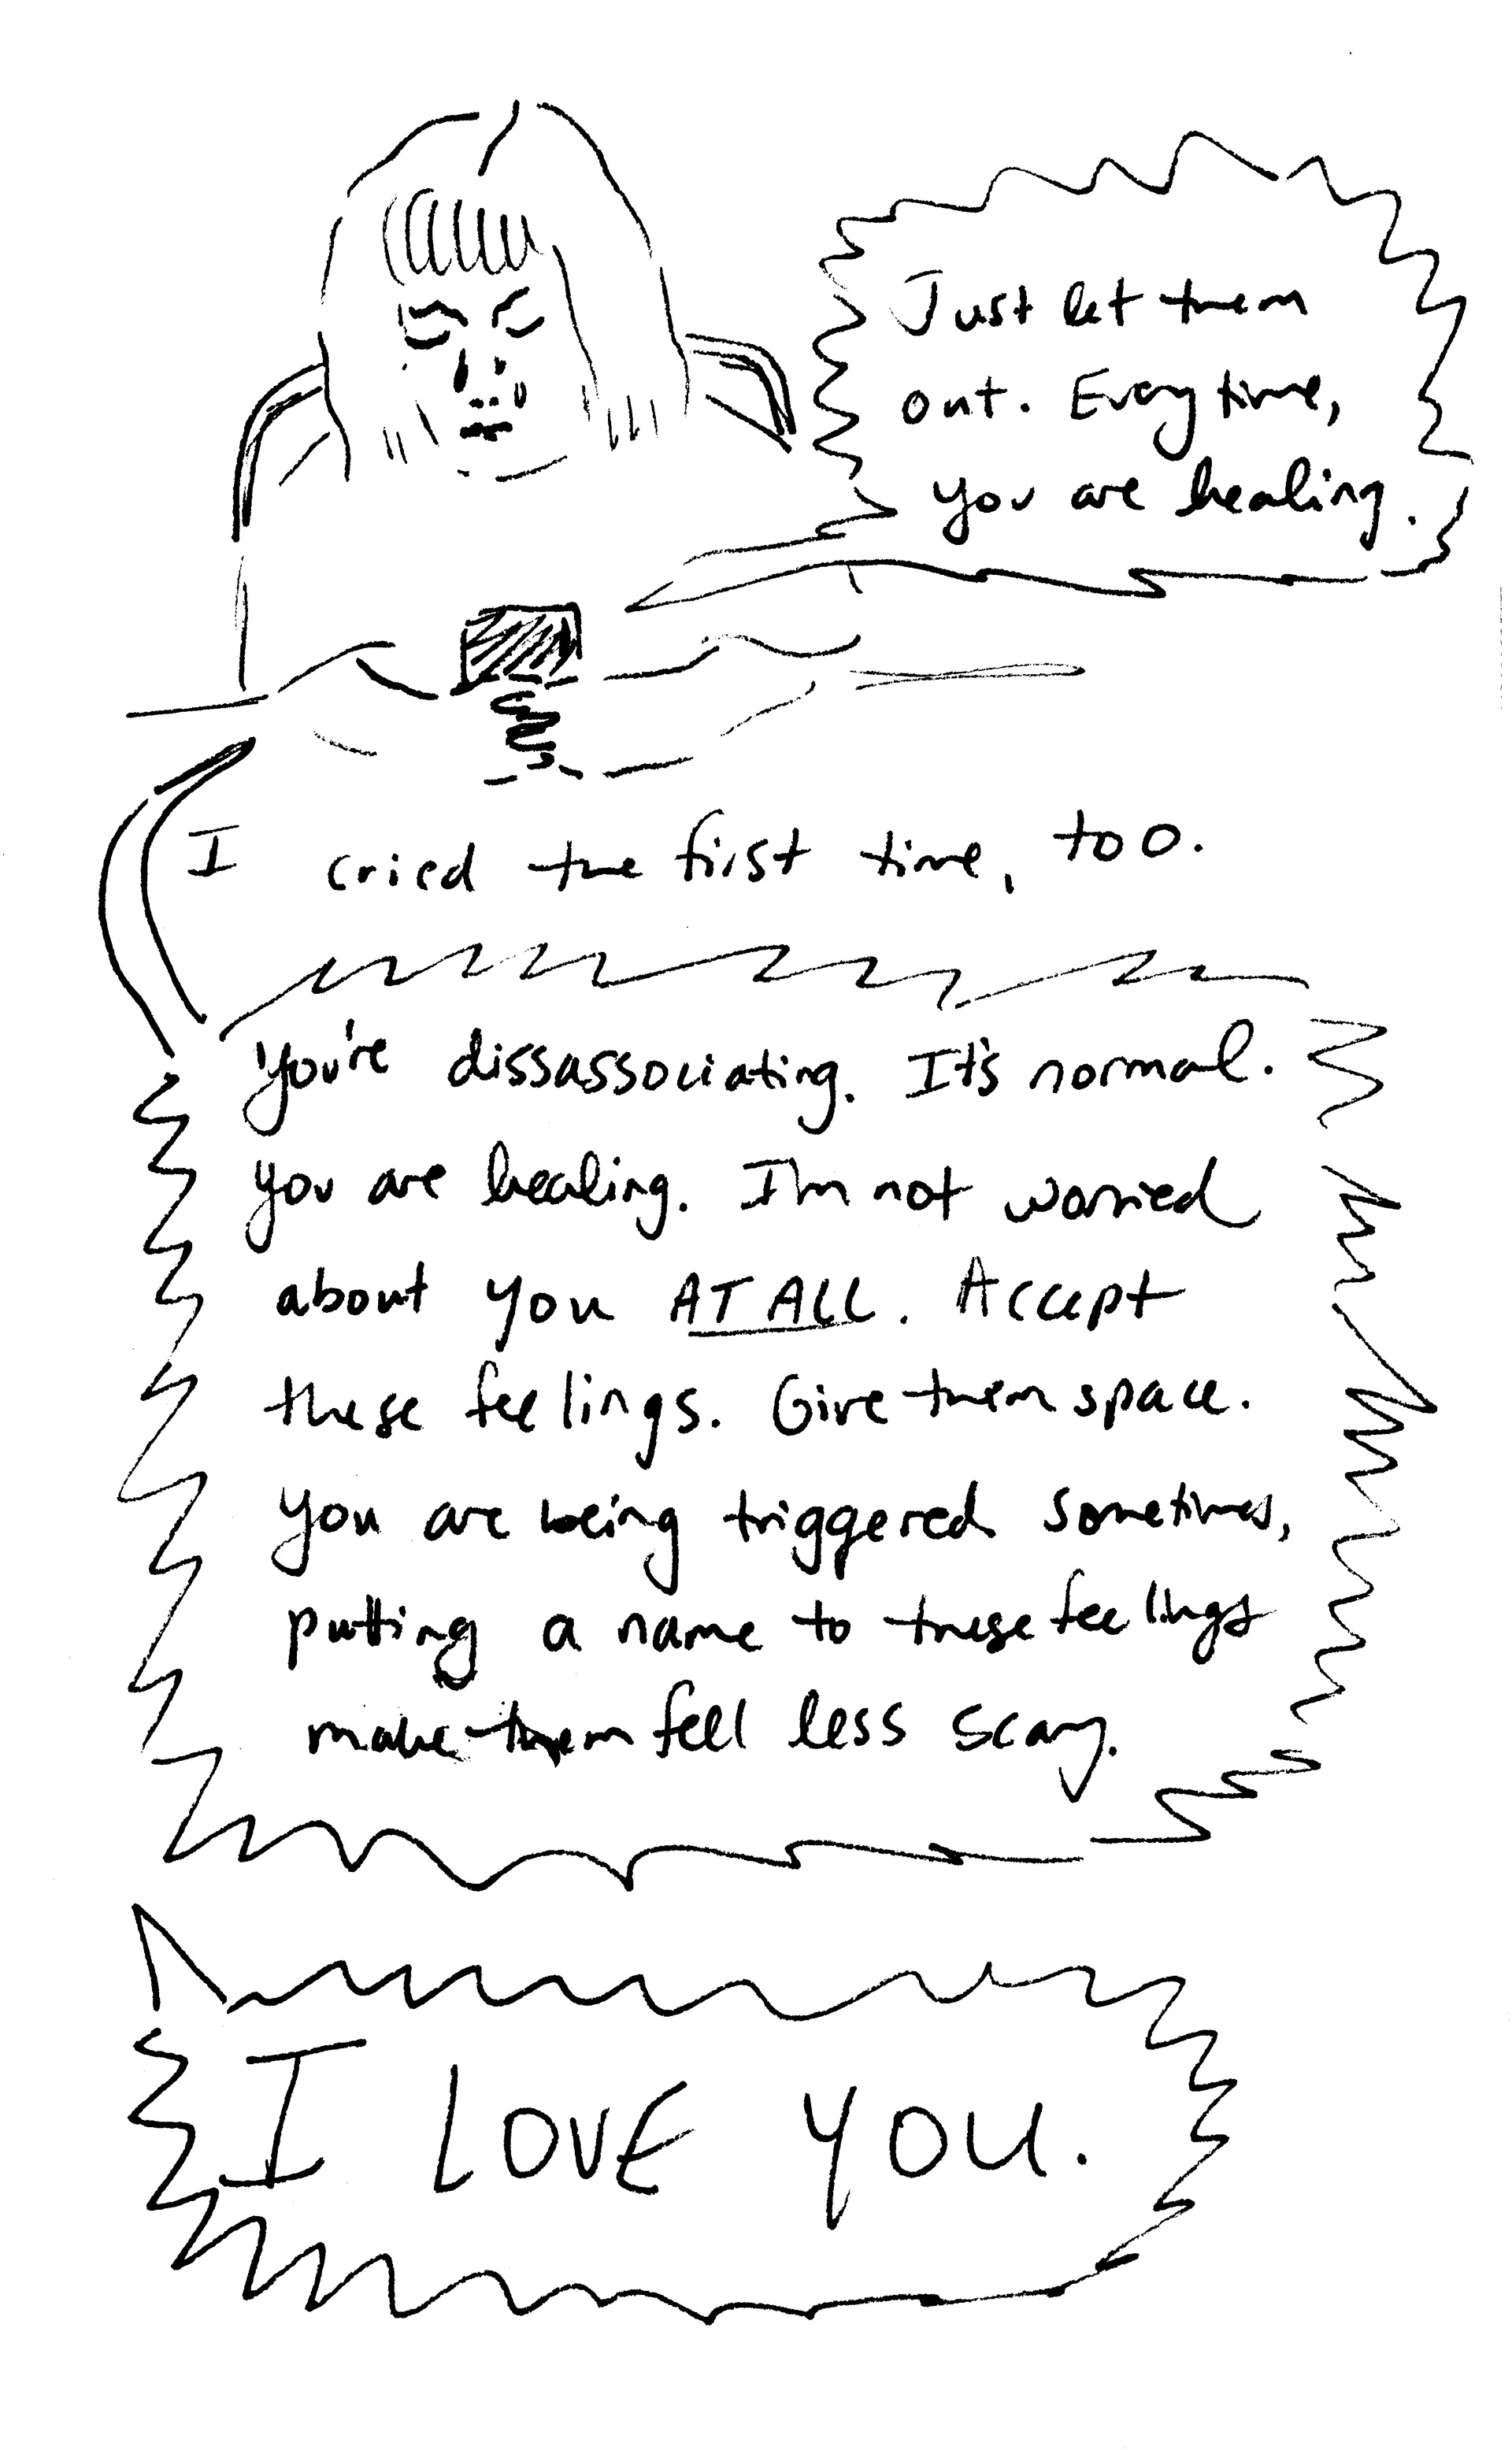 Just let them
out. Every time,
you are healing.
I cried the first time, too.
You're dissassociating. It's normal.
you are healing. I'm not worried
about you AT ALL. Accept
these feelings. Give them space.
you are being triggered sometimes,
putting a name to these feelings
make them fell less scary.
I LOVE YOU.